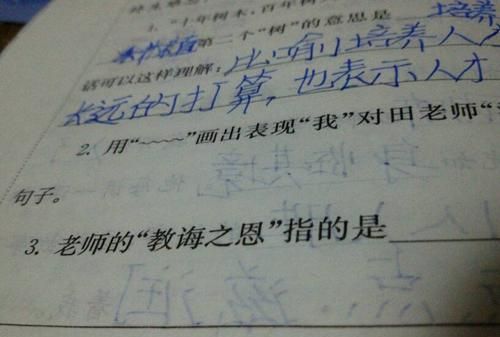 1. “十年树木，百年树
第二个“树”的意思是 培养
话可以这样理解：比喻培养人
长远的打算，也表示人才
2. 用“~~~~”画出表现“我”对田老师“
句子。
3. 老师的“教诲之恩”指的是